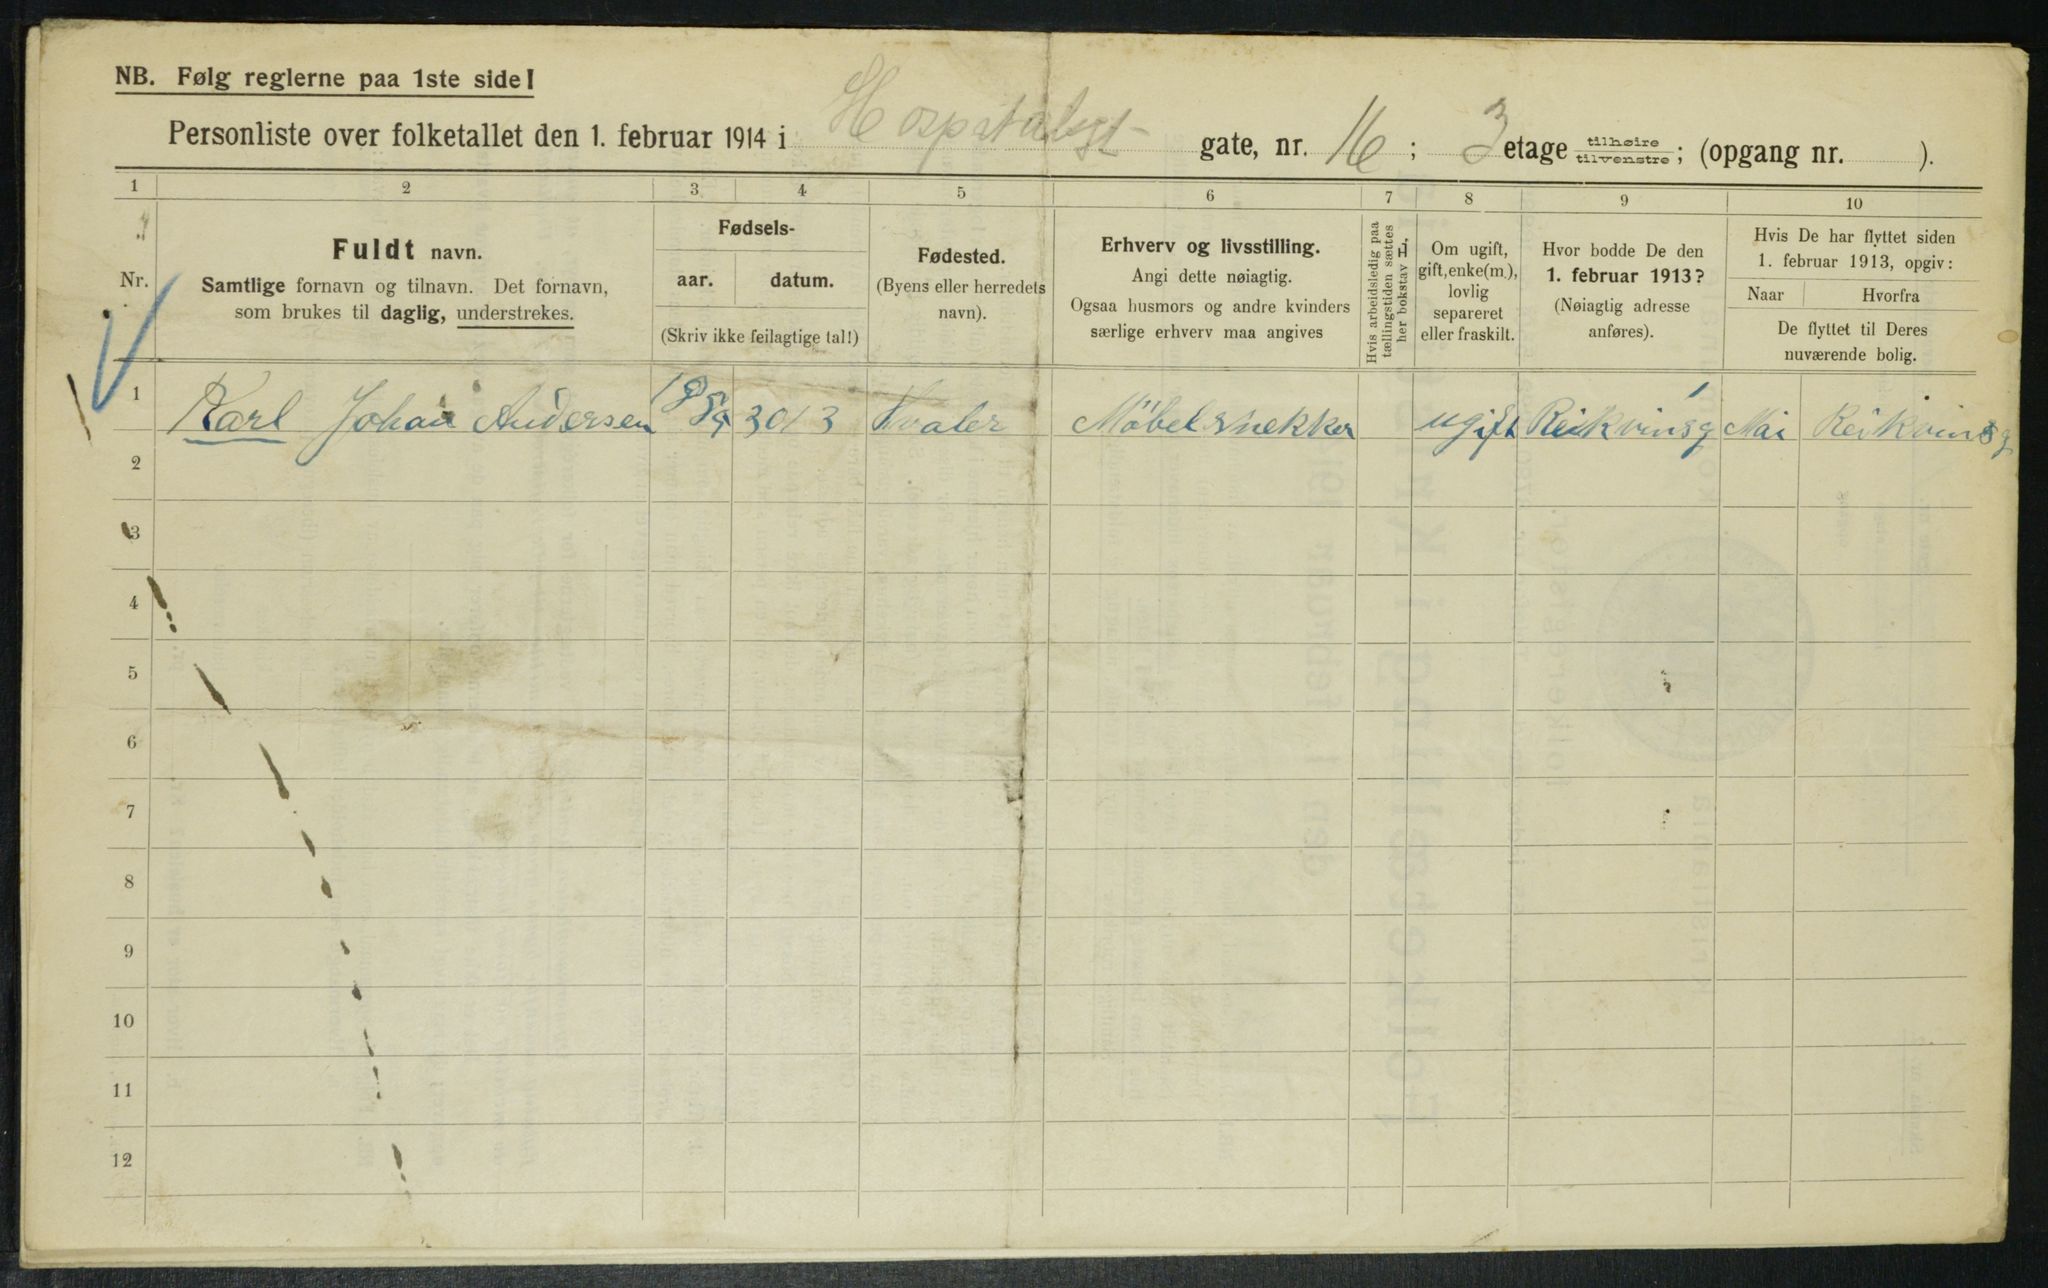 NB. Følg reglerne paa 1ste side!
Personliste over folketallet den 1. februar 1914 i Hospitalsgt gate, nr. 16; 3 etage tilhøire tilvenstre; (opgang nr. ).
1 2 3 4 5 6 7 8 9 10
Nr.
Fuldt navn.
Samtlige fornavn og tilnavn. Det fornavn,
som brukes til daglig, understrekes.
Fødsels-
aar. datum.
(Skriv ikke feilagtige tal!)
Fødested.
(Byens eller herredets
navn).
Erhverv og livsstilling.
Angi dette nøiagtig.
Ogsaa husmors og andre kvinders
særlige erhverv maa angives
Hvis arbeidsledig paa
tællingstiden sættes
her bokstav L.
Om ugift,
gift, enke(m.),
lovlig
separeret
eller fraskilt.
Hvor bodde De den
1. februar 1913?
(Nøiagtig adresse
anføres).
Hvis De har flyttet siden
1. februar 1913, opgiv:
Naar Hvorfra
De flyttet til Deres
nuværende bolig.
1 Karl Johan Andersen 30/3 Hvaler Möbelsnekker ugift Reikvinsg Mai Reikvinsg
2
3
4
5
6
7
8
9
10
11
12